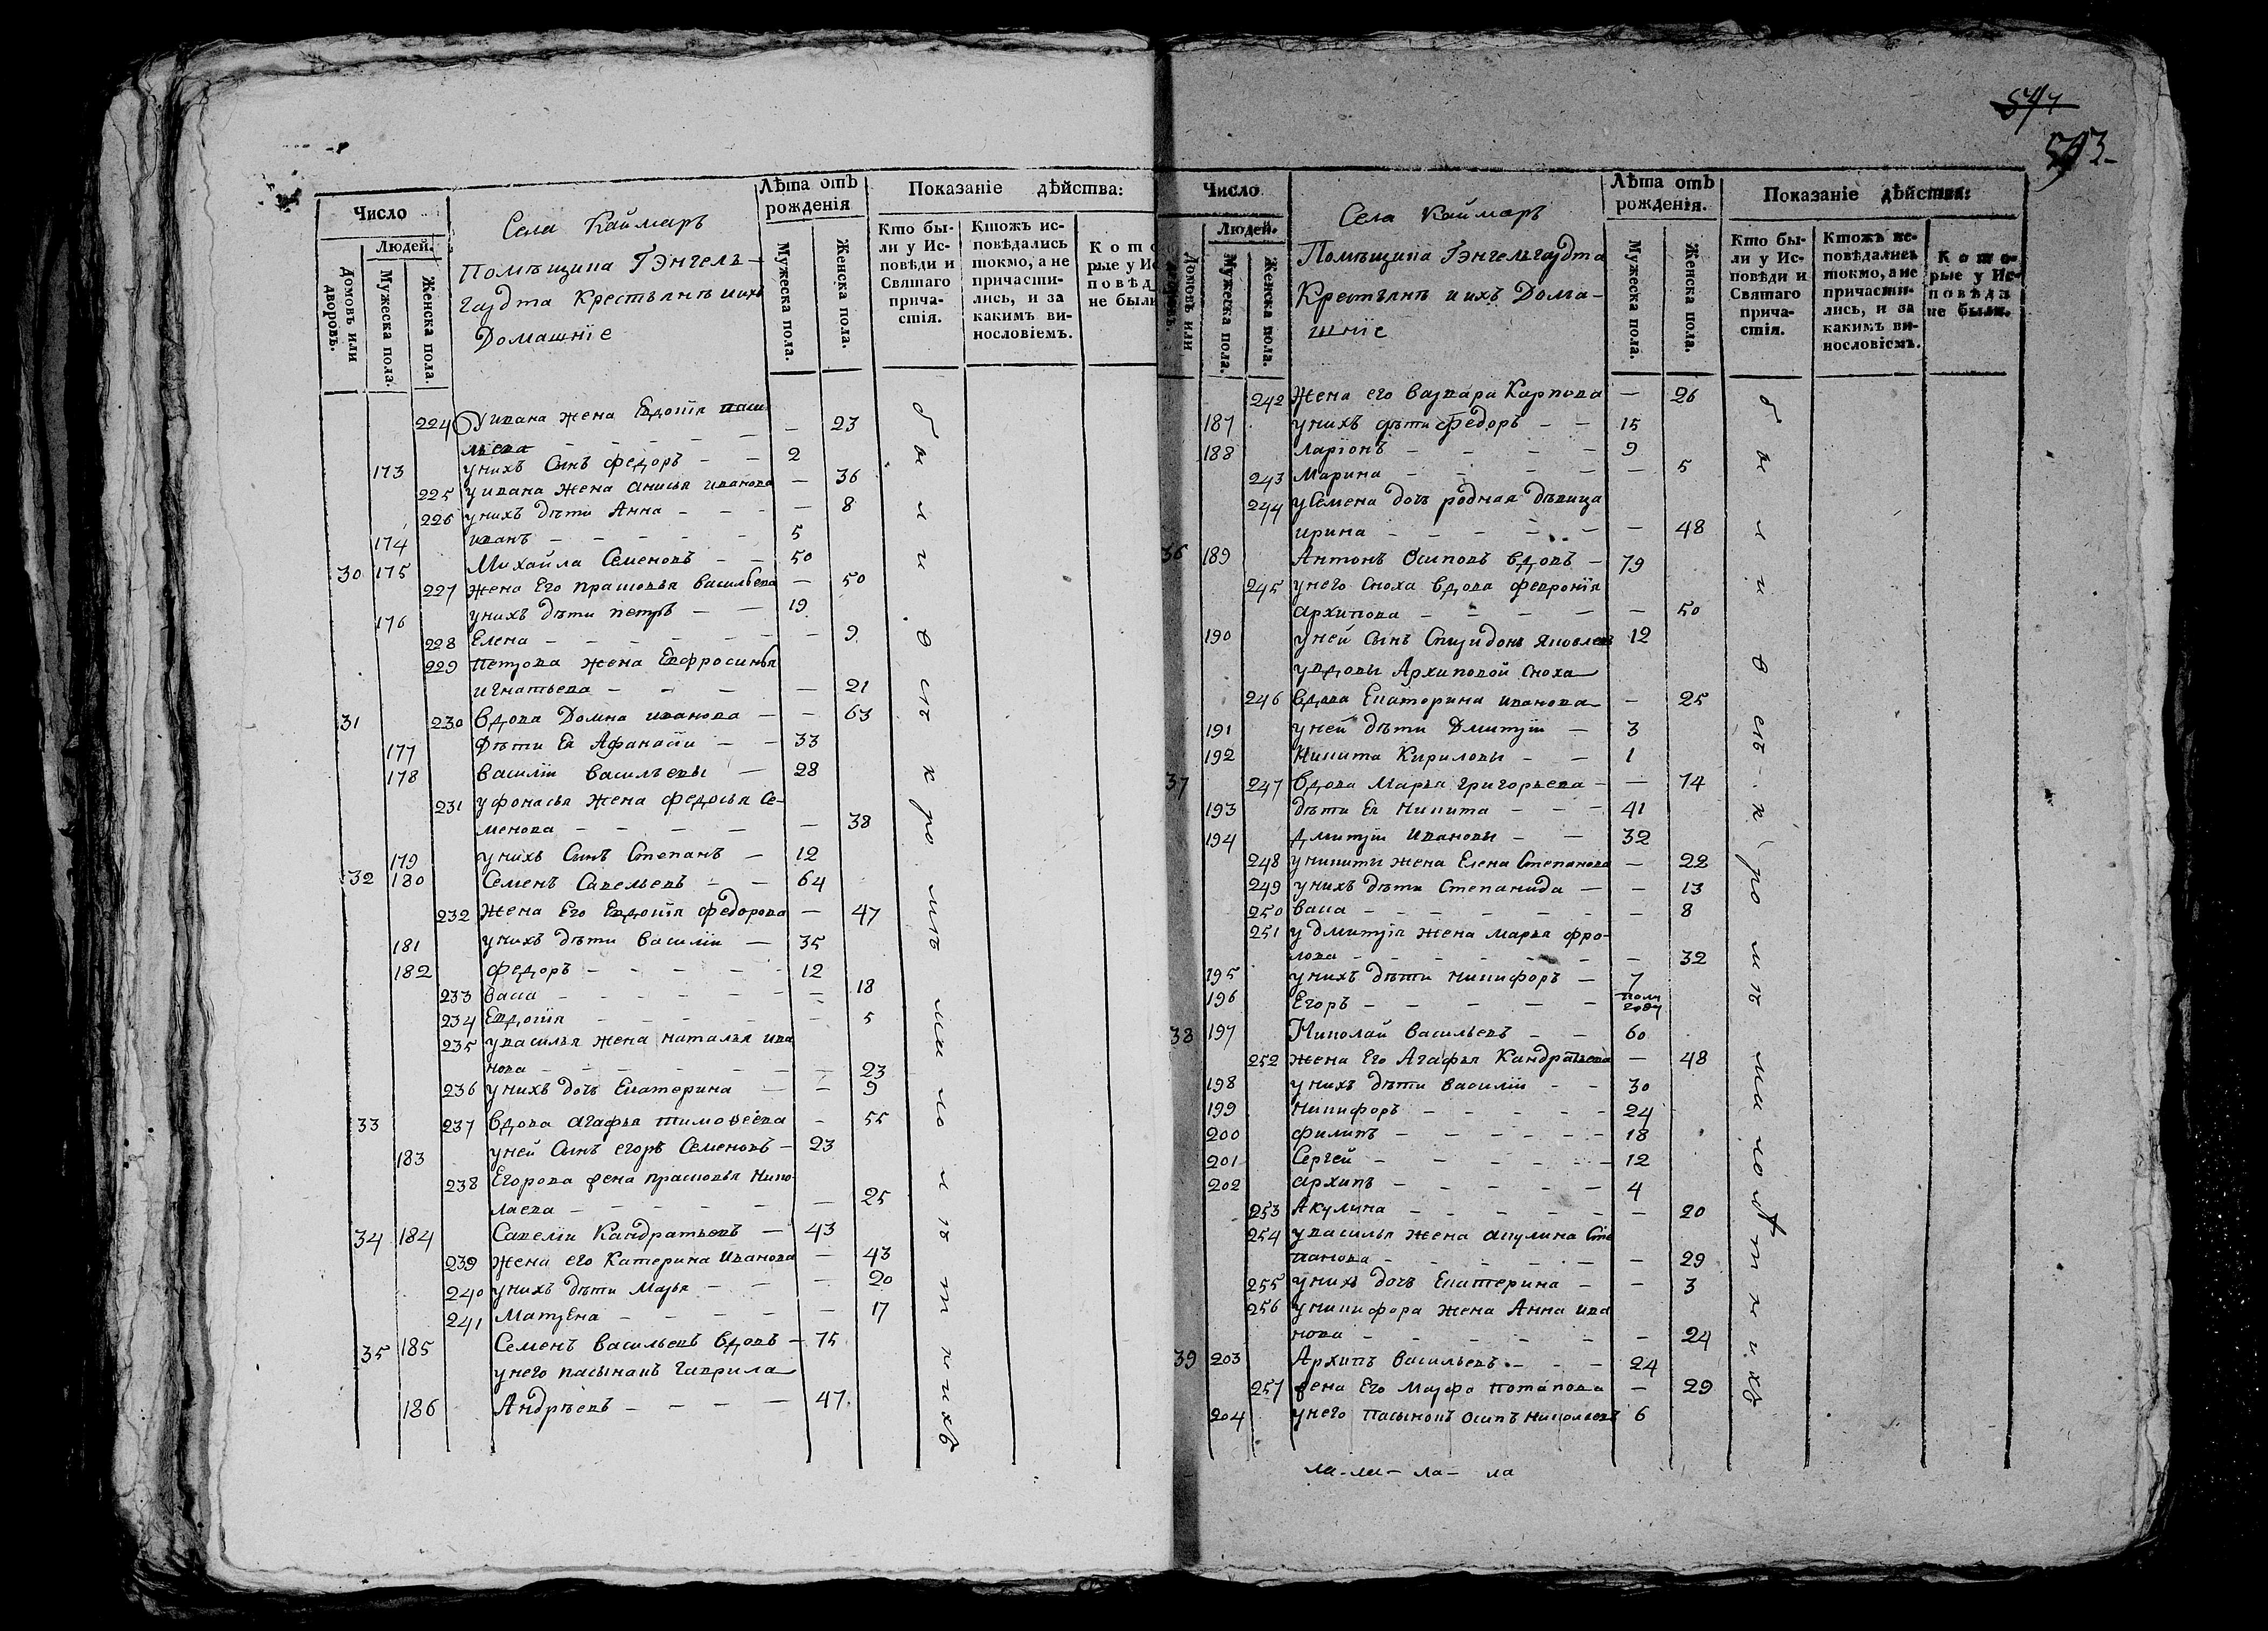 574
593
Число
Людей.
Домовъ или дворовъ.
Мужеска пола.
Женска пола.
Села Каймаръ
Помѣщика Гэнгель-
гардта Крестьянѣ иихъ
Домашнїе
Лѣта отъ рожденія
Мужеска пола.
Женска пола.
Показаніе дѣйства:
Кто бы-
ли у Ис-
повѣди и
Святаго
прича-
стія.
Ктожъ ис-
повѣдались
токмо, а не
причасти-
лись, и за
какимъ ви-
нословіемъ.
Кото
рые у Ис
повѣд
не были
224 Уивана жена Евдокїя васи
льева — 23
173 унихъ Сынъ федоръ — 2
225 уивана жена анисья иванова — 36
226 унихъ дѣти Анна — 8
174 иванъ — 5
30 175 Михайла Семеновъ — 50
227 жена Его прасковья васильева — 50
176 унихъ дѣти петръ — 19
228 Елена — 9
229 петрова жена Евфросинья
игнатьева — 21
31 230 вдова Домна иванова — 63
177 дѣти Ея Афанасїи — 33
178 василїи васильевы — 28
231 уфонасья жена федосья Се-
менова — 38
179 унихъ Сынъ Степанъ — 12
32 180 Семенъ Савельевъ — 64
232 жена Его Евдокїя федорова — 47
181 унихъ дѣти василїи — 35
182 федоръ — 12
233 васа — 18
234 Евдокїя — 5
235 увасилья жена наталья ива
нова — 23
236 унихъ дочь Екатерина — 9
33 237 вдова агафья тимоѳеева — 55
183 уней Сынъ егоръ Семеновъ — 23
238 Егорова жена прасковья Нико
лаева — 25
34 184 Савелїи Кандратьевъ — 43
239 жена его Катерина Иванова — 43
240 унихъ дѣти Марья — 20
241 Матрена — 17
35 185 Семенъ васильевъ вдовъ — 75
унего пасынакъ гаврила
186 Андрѣевъ — 47
были всѣ кромѣ малолѣтнихъ
Число
Людей.
Домовъ или дворовъ.
Мужеска пола.
Женска пола.
Села Каймаръ
Помѣщика Гэнгельгардта
Крестьянѣ иихъ Дома-
шнїе
Лѣта отъ рожденія.
Мужеска пола.
Женска пола.
Показаніе дѣйства:
Кто бы-
ли у Ис-
повѣди и
Святаго
прича-
стія.
Ктожъ ис-
повѣдались
токмо, а не
причасти-
лись, и за
какимъ ви-
нословіемъ.
Кото-
рые у Ис-
повѣди
не были.
242 Жена его варвара Карпова — 26
187 унихъ дѣти федоръ — 15
188 ларїонъ — 9
243 Марина — 5
244 уСемена дочь родная дѣвица
ирина — 48
36 189 Антонъ Осиповъ вдовъ — 79
245 унего сноха вдова феаронїя
архипова — 50
190 уней сынъ Спиридонъ Яковлевъ 12
увдовы Архиповой сноха
246 вдова Екатерина иванова — 25
191 уней дѣти Дмитрїи — 3
192 Никита Кириловы — 1
37 247 вдова Марья григорьева — 74
193 дѣти Ея Никита — 41
194 дмитрїи Ивановы — 32
248 уникиты жена Елена Степанова — 22
249 унихъ дѣти Степанида — 13
250 васа — 8
251 у дмитрїя жена марья фро-
лова — 32
195 унихъ дѣти никифоръ — 7
196 Егоръ — пол году
38 197 Николай васильевъ — 60
252 жена Его Агафья Кандратьева — 48
198 унихъ дѣти василїи — 30
199 никифоръ — 24
200 филипъ — 18
201 Сергей — 12
202 архипъ — 4
253 Акулина — 20
254 увасилья жена акулина Сте
панова — 29
255 унихъ дочь Екатерина — 3
256 уникифора жена Анна ива
нова — 24
39 203 Архипъ васильевъ — 24
257 жена Его Марфа потапова — 29
204 унего пасынокъ осипъ никол​аевъ 6
были всѣ кромѣ малолѣтнихъ
ла-ла- ла- ла